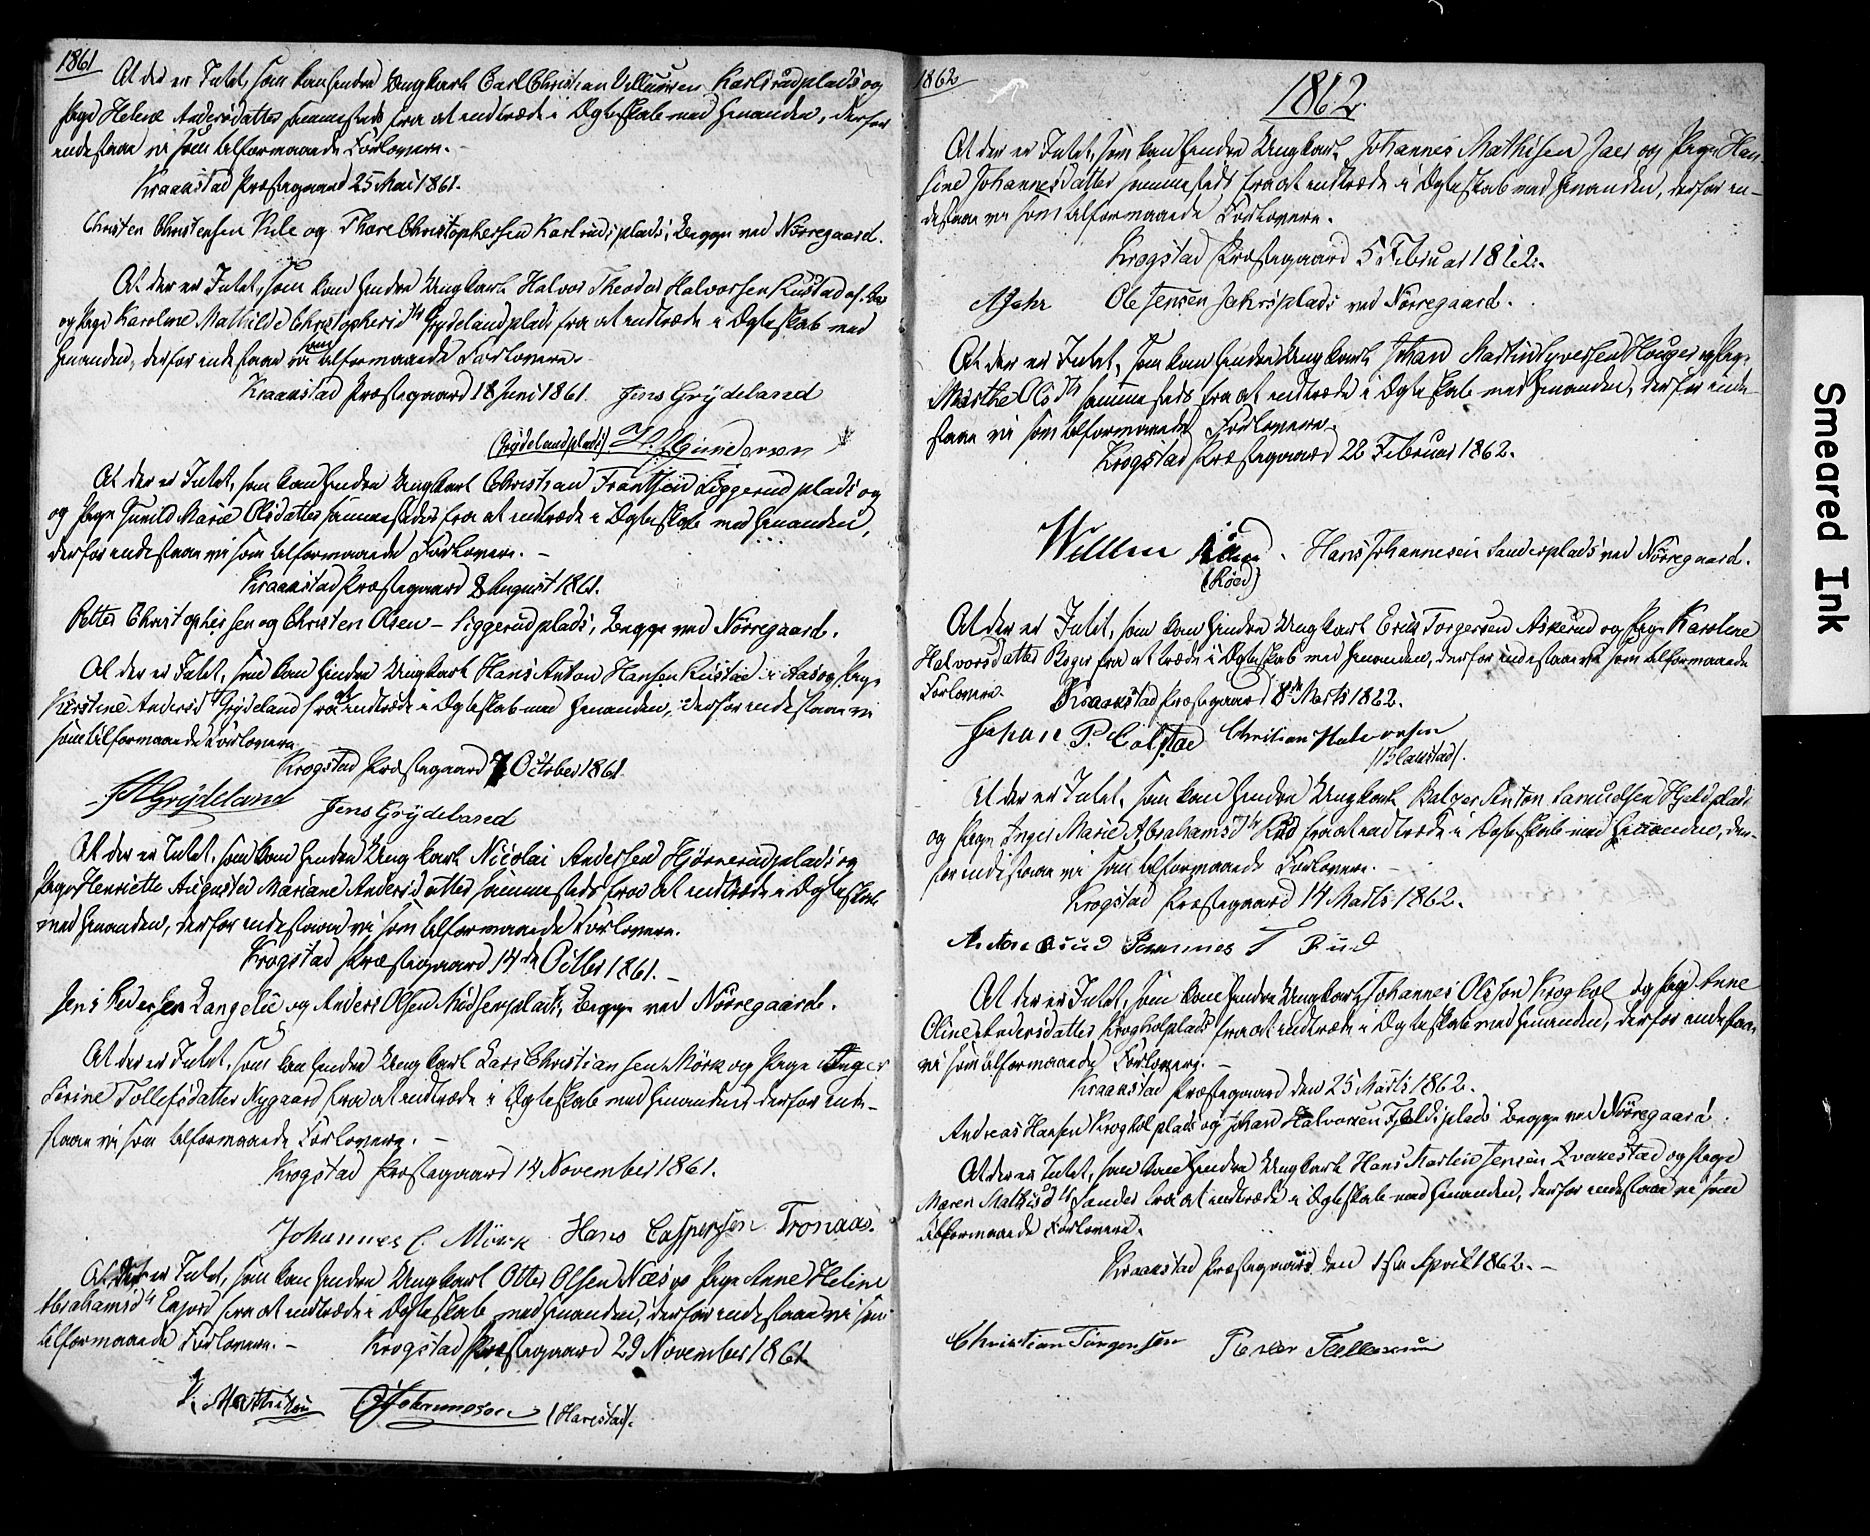 1861
At der er Intet, som kan hindre Ungkarl Carl Christian Karlsrudplads og
Pige Helene Andersdatter sammesteds fra at indtræde i Ægteskab med hinanden, derfor
indestaae vi som tilformaaede Forlovere.
Kraakstad Præstegaard 25 Mai 1861.
Christen Christensen og Thore Christophersen Karlrudsplads, begge ved Nørregaard.
At der er Intet, som kan hindre Ungkarl Halvor Theodor Halvorsen Rustad af Aas
og Pige Karoline Mathilde Christophersd'tr Grydelandplads fra at indtræde i Ægteskab med
hinanden, derfor indestaae vi som tilformaaede Forlovere.
Kraakstad Præstegaard 18 Juni 1861. Jens Grydeland
(Grydelandplads) H. Gundersen
At der er Intet, som kan hindre Ungkarl Christian Frantsen Liggerudplads og
og Pige Gunild Marie Olsdatter sammesteds fra at indtræde i Ægteskab med hinanden,
derfor indestaae vi som tilformaaede Forlovere. –
Kraakstad Præstegaard 8 August 1861.
Petter Christophersen og Christen Olsen – Liggerudplads, begge ved Nørregaard.
At der er Intet, som kan hindre Ungkarl Hans Anton Hansen Rustad i Aas og Pige
Kirstine Andersd'tr Grydeland fra at indtræde i Ægteskab med hinanden, derfor indestaae vi
som tilformaaede Forlovere
Krogstad Præstegaard 7 October 1861.
A Grydeland Jens Grydeland
At der er Intet, som kan hindre Ungkarl Nicolai Andersen Hjørnerudplads og
Pige Henriette Augusta Mariane Andersdatter sammesteds fra at indtræde i Ægteskab
med hinanden, derfor indestaae vi som tilformaaede Forlovere.
Krogstad Præstegaard 14de Octbr 1861. –
Jens Pedersen Langelie og Anders Olsen plads, begge ved Nørregaard.
At der er Intet, som kan hindre Ungkarl Lars Christiansen Mørk og Pige Inger
Sørine Tollefsdatter Nygaard fra at indtræde i Ægteskab med hinanden derfor inde-
staae vi som tilformaaede Forlovere. –
Krogstad Præstegaard 14 November 1861.
Johannes C. Mørk Hans Caspersen Tronaas.
At der er Intet, som kan hindre Ungkarl Otter Olsen Næs og Pige Anne Heline
Abrahamsd'tr Enjord fra at indtræde i Ægteskab med hinanden, derfor indestaae vi som
tilformaaede Forlovere. – Krogstad Præstegaard 29 November 1861.
Mathisen Johannesen (Harestad).
1862
1862.
At der er Intet, som kan hindre Ungkarl Johannes Mathisen Jaer og Pige Han-
sine Johannesdatter sammesteds fra at indtræde i Ægteskab med hinanden, derfor in-
destaae vi som tilformaaede Forlovere.
Krogstad Præstegaard 5 Februar 1862.
A Jahr Ole Jensen Jahrsplads ved Nørregaard.
At der er Intet, som kan hindre Ungkarl Johan Martin Syversen Houger og Pige
Marthe Olsd'tr sammesteds fra at indtræde i Ægteskab med hinanden, derfor inde-
staae vi som tilformaaede Forlovere.
Krogstad Præstegaard 22 Februar 1862.
Hans Johannesen Sanderplads ved Nørregaard.
(Roed)
At der er Intet, som kan hindre Ungkarl Erik Torgersen Askerud og Pige Karoline
Halvorsdatter Boger fra at træde i Ægteskab med hinanden, derfor indestaae vi som tilformaaede
Forlovere. Kraakstad Præstegaard 8de Marts 1862.
Johan P. Christian Halvorsen
(Blakstad).
At der er Intet, som kan hindre Ungkarl Anton Samuelsen plads
og Pige Inger Marie Abrahamsd'tr Rud fra at indtræde i Ægteskab med hinanden, der-
for indestaae vi som tilformaaede Forlovere. –
Krogstad Præstegaard 14 Marts 1862.
Rud
At der er Intet, som kan hindre Ungkarl Johannes Olsson Kroghol og Pige Anne
Oline Andersdatter Krogholplads fra at indtræde i Ægteskab med hinanden, derfor indestaae
vi som tilformaaede Forlovere. –
Kraakstad Præstegaard den 25 Marts 1862.
Andreas Hansen Krogholplads og Johan Halvorsen plads begge ved Nørregaard.
At der er Intet, som kan hindre Ungkarl Hans Martin Jensen og Pige
Maren Mathisd'tr Sander fra at indtræde i Ægteskab med hinanden, derfor indestaae vi som
tilformaaede Forlovere.
Kraakstad Præstegaard den April 1862. –
Christian Jørgensen Peder
Smeared Ink